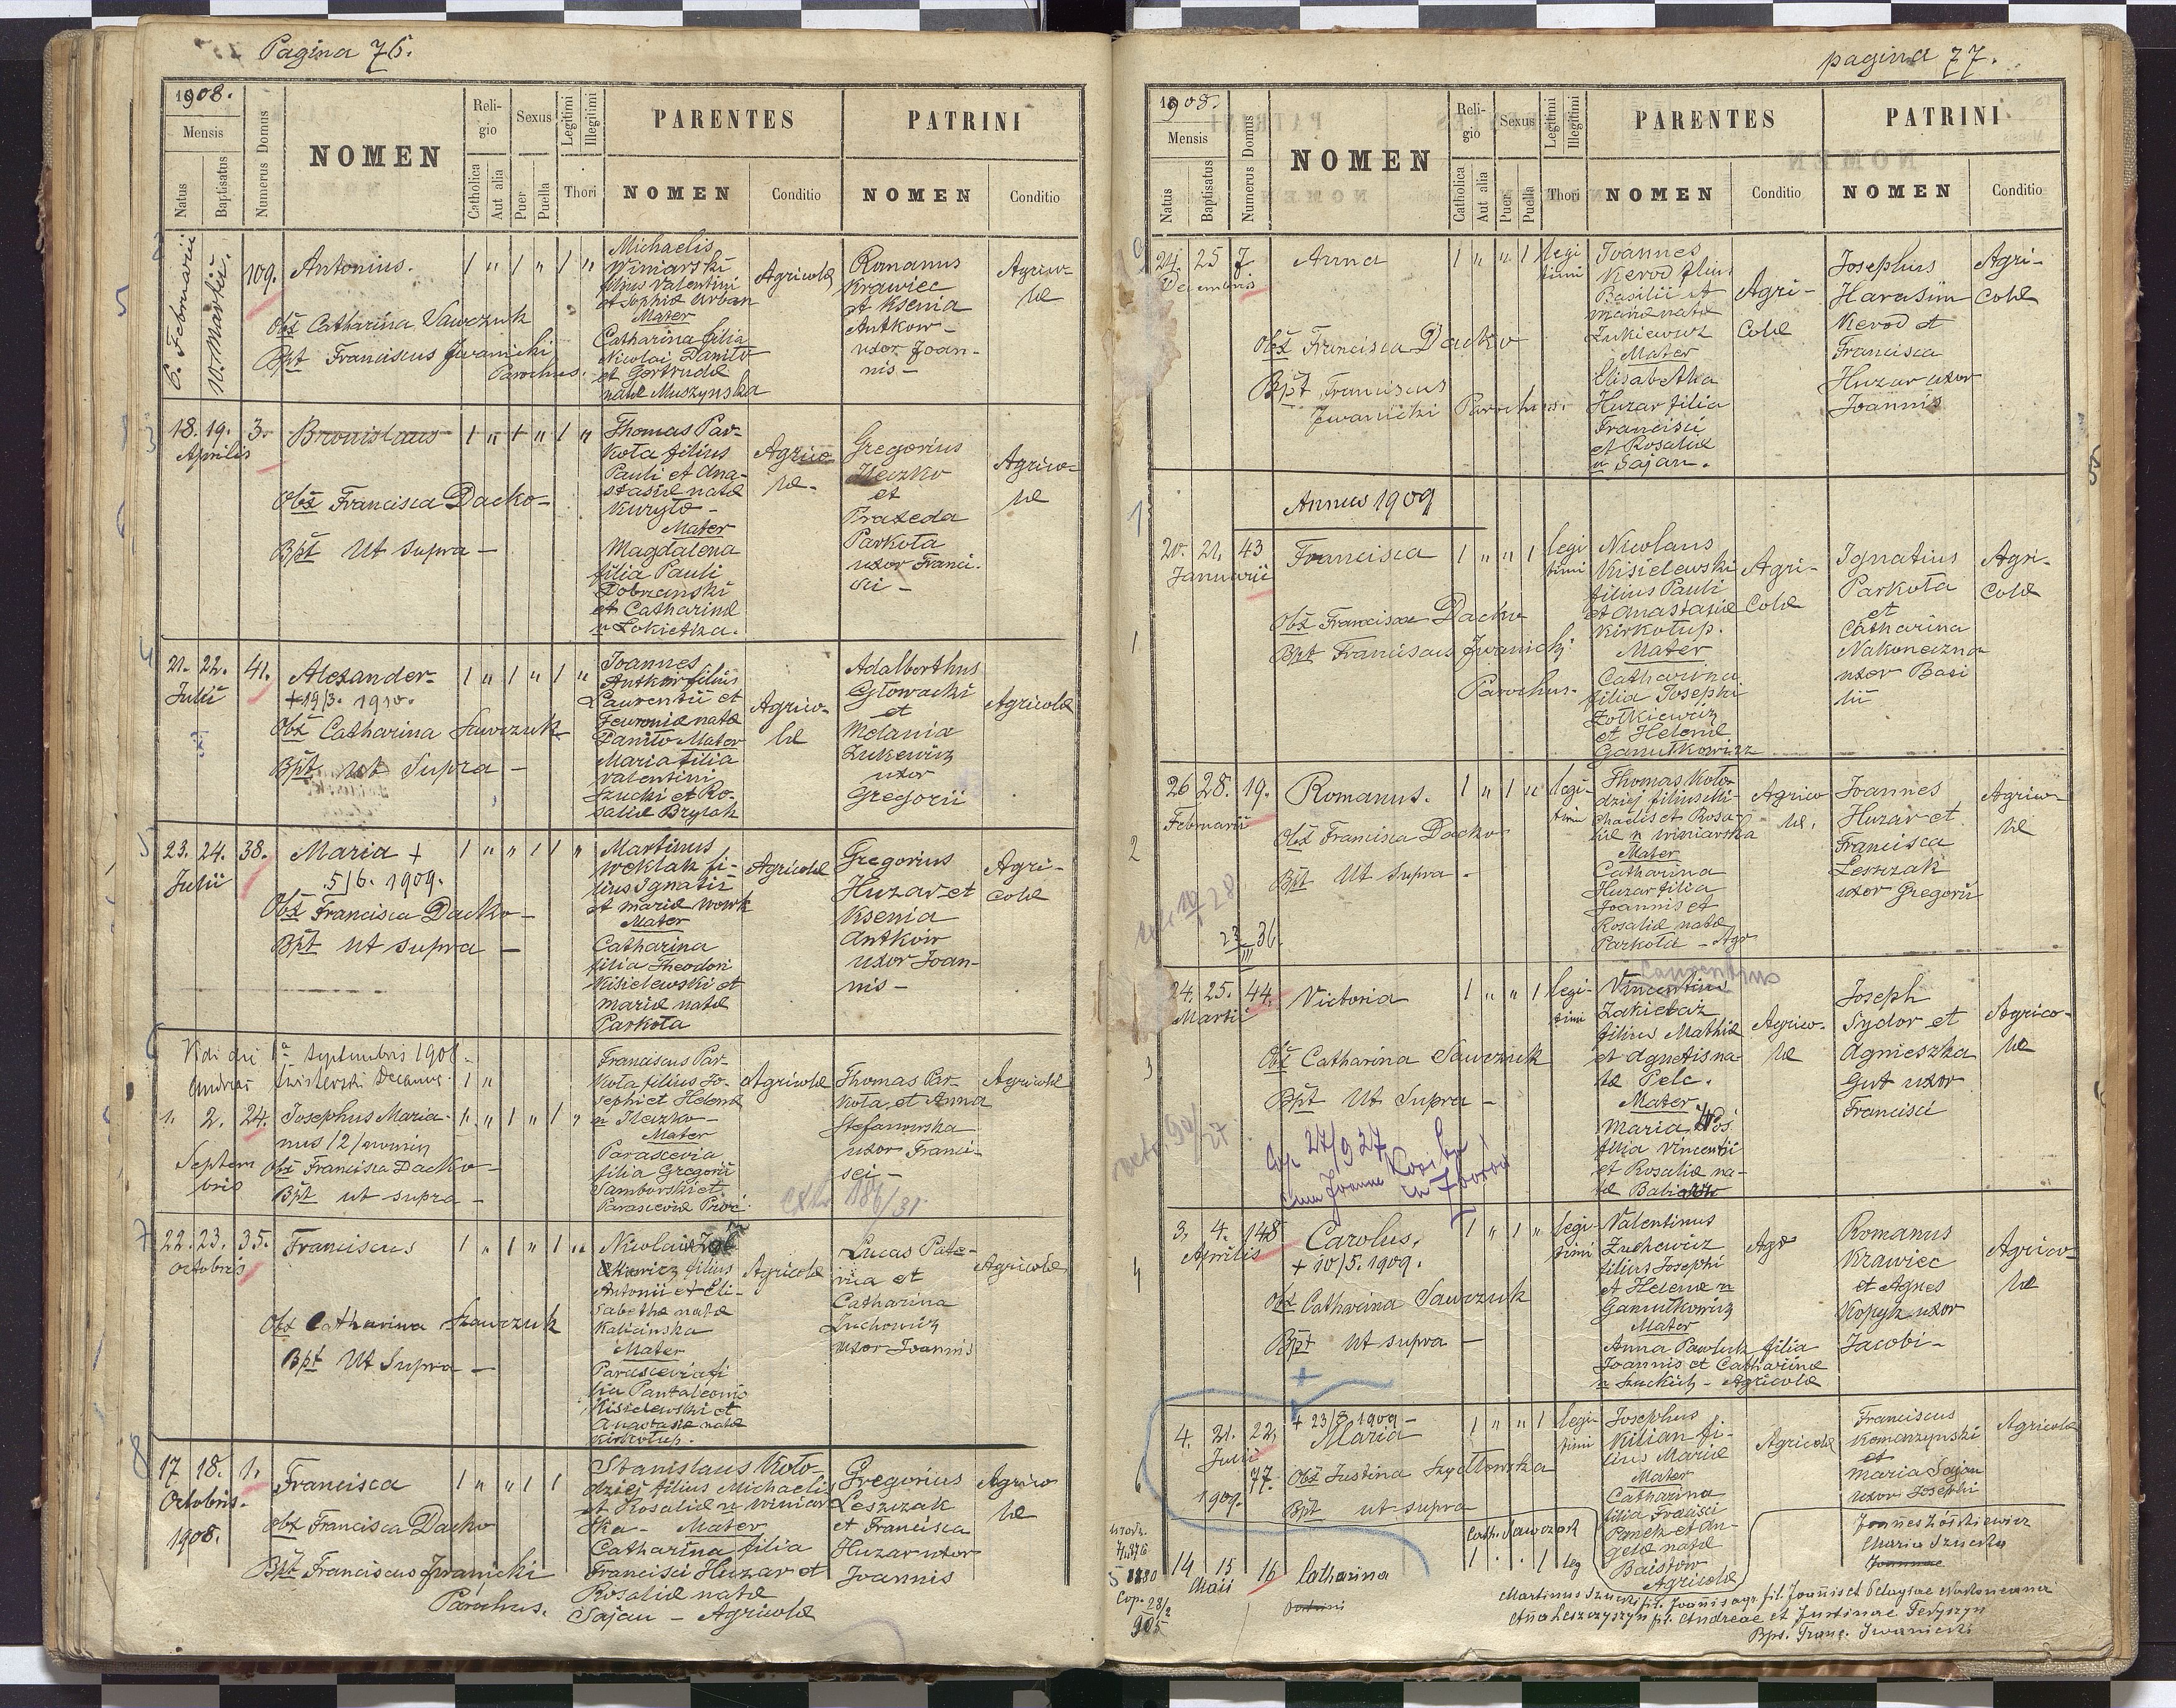 Pagina 76.
1908.
Mensis
Natus
Baptisatus
Numerus Domus
NOMEN
Reli-
gio
Catholica
Aut alia
Sexus
Puer
Puella
Legitimi
Illegitimi
Thori
PARENTES
NOMEN
Conditio
PATRINI
NOMEN
Conditio
6. Februarii
10. Martii.
109.
Antonius.
1 " 1 " 1 "
Obst Catharina Sawczuk
Bpt Franciscus Iwanicki
Parochus.
Michaelis
Winiarski
filius Valentini
et Sophiæ Urban
Mater
Catharina filia
Nicolai Daniło
et Gertrudæ
natæ Muszynska
Agricolæ
Romanus
Krawiec
et Ksenia
Antkow-
uxor Joan-
nis -
Agrico-
læ
18. 19. 3.
Aprilis
Bronislaus
1 " 1 " 1 "
Obst Francisca Dacko -
Bpt Ut Supra -
Thomas Par-
kota filius
Pauli et Ana-
stasiæ natæ
Kuryło -
Mater
Magdalena
filia Pauli
Dobrzanski
et Catharinæ
n Łokietka.
Agrico-
læ -
Gregorius
Ileczko
et
Praxeda
Parkota
uxor Franci-
sci -
Agrico-
læ
21. 22. 41.
Julii
Alexander-
+ 19/3. 1910.
1 " 1 " 1 "
Obst Catharina Sawczuk
Bpt Ut Supra -
Joannes
Antkow filius
Laurentii et
Fevroniæ natæ
Daniło Mater
Maria filia
Valentini
Szucki et Ro-
saliæ Brylak
Agrico-
læ
Adalberthus
Głowacki
et
Melania
Zukewicz
uxor
Gregorii
Agricolæ
23. 24. 38.
Julii
Maria +
5/6. 1909.
1 " " 1 1 "
Obst Francisca Dacko -
Bpt Ut supra -
Martinus
Weklak fi-
lius Ignatii
et Mariæ Wowk
Mater
Catharina
filia Theodori
Kisielewski et
Mariæ natæ
Parkota
Agricolæ
Gregorius
Huzar et
Ksenia
Antkow
uxor Joan-
nis -
Agri-
colæ
Vidi die 1ª Septembris 1908.
Andreas Decanus.
1. 2. 24.
Septem
bris
Josephus Maria-
nus /2/ nomin
1 " 1 " 1 "
Obst Francisca Dacko -
Bpt ut supra -
Franciscus Par-
kota filius Jo-
sephi et Helenæ
n Ileczko -
Mater
Parascevia
filia Gregorii
Samborski et
Parasceviæ
Agricolæ
Thomas Par-
kota et Anna
Stefanowska
uxor Franci-
sci -
Agricolæ
186/31
22. 23. 35.
Octobris
Franciscus
1 " 1 " 1 "
Obst Catharina Sawczuk
Bpt Ut Supra -
Nicolaus
filius
Antonii et Eli-
sabethæ natæ
Kalicinska
Mater
Parascevia fi
lia Pantaleonis
Kisielewski et
Anastasiæ natæ
Kirkotup.
Agricolæ
Lucas Pate-
et
Catharina
Zuchowicz
uxor Joannis
Agricolæ
17 18. 1.
Octobris.
1908.
Francisca
1 " " 1 1
Obst Francisca Dacko
Bpt Franciscus Iwanicki
Parochus.
Stanislaus Koło-
dziej filius Michaelis
et Rosaliæ n Winiar
ska - Mater
Catharina filia
Francisci Huzar et
Rosaliæ natæ
Sajan - Agricolæ
Gregorius
Leszczak
et Francisca
Huzar uxor
Joannis
Agrico
læ
pagina 77.
1908.
Mensis
Natus
Baptisatus
Numerus Domus
NOMEN
Reli-
gio
Catholica
Aut alia
Sexus
Puer
Puella
Legitimi
Illegitimi
Thori
PARENTES
NOMEN
Conditio
PATRINI
NOMEN
Conditio
24. 25 7.
Decembris
Anna
1 " " 1 legi
timi
Obst Francisca Dacko
Bpt Franciscus
Iwanicki Parochus.
Joannes
Nerod filius
Basilii et
Mariæ natæ
Zukiewicz
Mater
Elisabetha
Huzar filia
Francisci
et Rosaliæ
n Sajan.
Agri-
colæ
Josephus
Harasim
Nerod et
Francisca
Huzar uxor
Joannis
Agri-
colæ
Annus 1909
20. 21. 43
Januarii
Francisca
1 " " 1 legi
timi
Obst Francisca Dacko
Bpt Franciscus Iwanicki
Parochus.
Nicolaus
Kisielewski
filius Pauli
et Anastasiæ
Kirkotup.
Mater
Catharina
filia Josephi
Zołkiewicz
et Helenæ
Gamułkowicz
Agri-
colæ
Ignatius
Parkota
et
Catharina
Nakoneczna
uxor Basi
lii
Agri-
colæ
26 28. 19.
Februarii
Romanus.
1 " 1 " legi-
timi
Obst Francisca Dacko
Bpt Ut Supra -
Thomas Koło-
dziej filius Mi-
chaelis et Rosa-
liæ n Winiarska
Mater
Catharina
Huzar filia
Joannis et
Rosaliæ natæ
Parkota - Agr
Agrico
læ.
Joannes
Huzar et
Francisca
Leszczak
uxor Gregorii
Agrico-
læ
24. 25. 44.
Martii
Victoria
1 " " 1 legi-
timi
Obst Catharina Sawczuk
Bpt Ut Supra -
Cop 27/9 27
cum Joanne Koziba
Laurentius
Vincentius
filius Mathiæ
et Agnetis na-
tæ Pelc.
Mater
Maria Wos
filia Vincentii
et Rosaliæ na-
tæ
Agrico-
læ
Joseph
Sydor et
Agnieszka
Gut uxor
Francisci
Agrico-
læ
3. 4. 148
Aprilis
Carolus.
+ 10/5. 1909.
1 " 1 " legi-
timi
Obst Catharina Sawczuk
Bpt ut supra -
Valentinus
Zuchewicz
filius Josephi
et Helenæ n
Gamułkowicz
Mater
Anna Pawluk filia
Joannis et Catharinæ
n Szuckich - Agricolæ
Agr
Romanus
Krawiec
et Agnes
Kopyk uxor
Jacobi -
Agrico-
læ
4. 21. 22.
Julii 77.
1909.
+ 23/8 1909 -
Maria
1 " " 1 legi
timi
Obst Justina Szydłowska
Bpt ut supra
Josephus
Kilian fi-
lius Mariæ
Mater
Catharina
filia Francisci
Panek et An-
gelæ natæ
Agricolæ
Agricolæ
Franciscus
Komarzynski
et
Maria Sajan
uxor Josephi
Agricolæ
14 15 16
Maii
Catharina
Cath. Sawczuk
1 . . 1 leg
Cop. 28/2
905
Maria Szucka
Martinus Szucki fil. Joannis agr. fil. Joannis et Pelagiae Nakoneczna
Anna Leszczyszyn fil. Andreae et Justinae Fedyszyn
Bps. Franc. Iwanicki